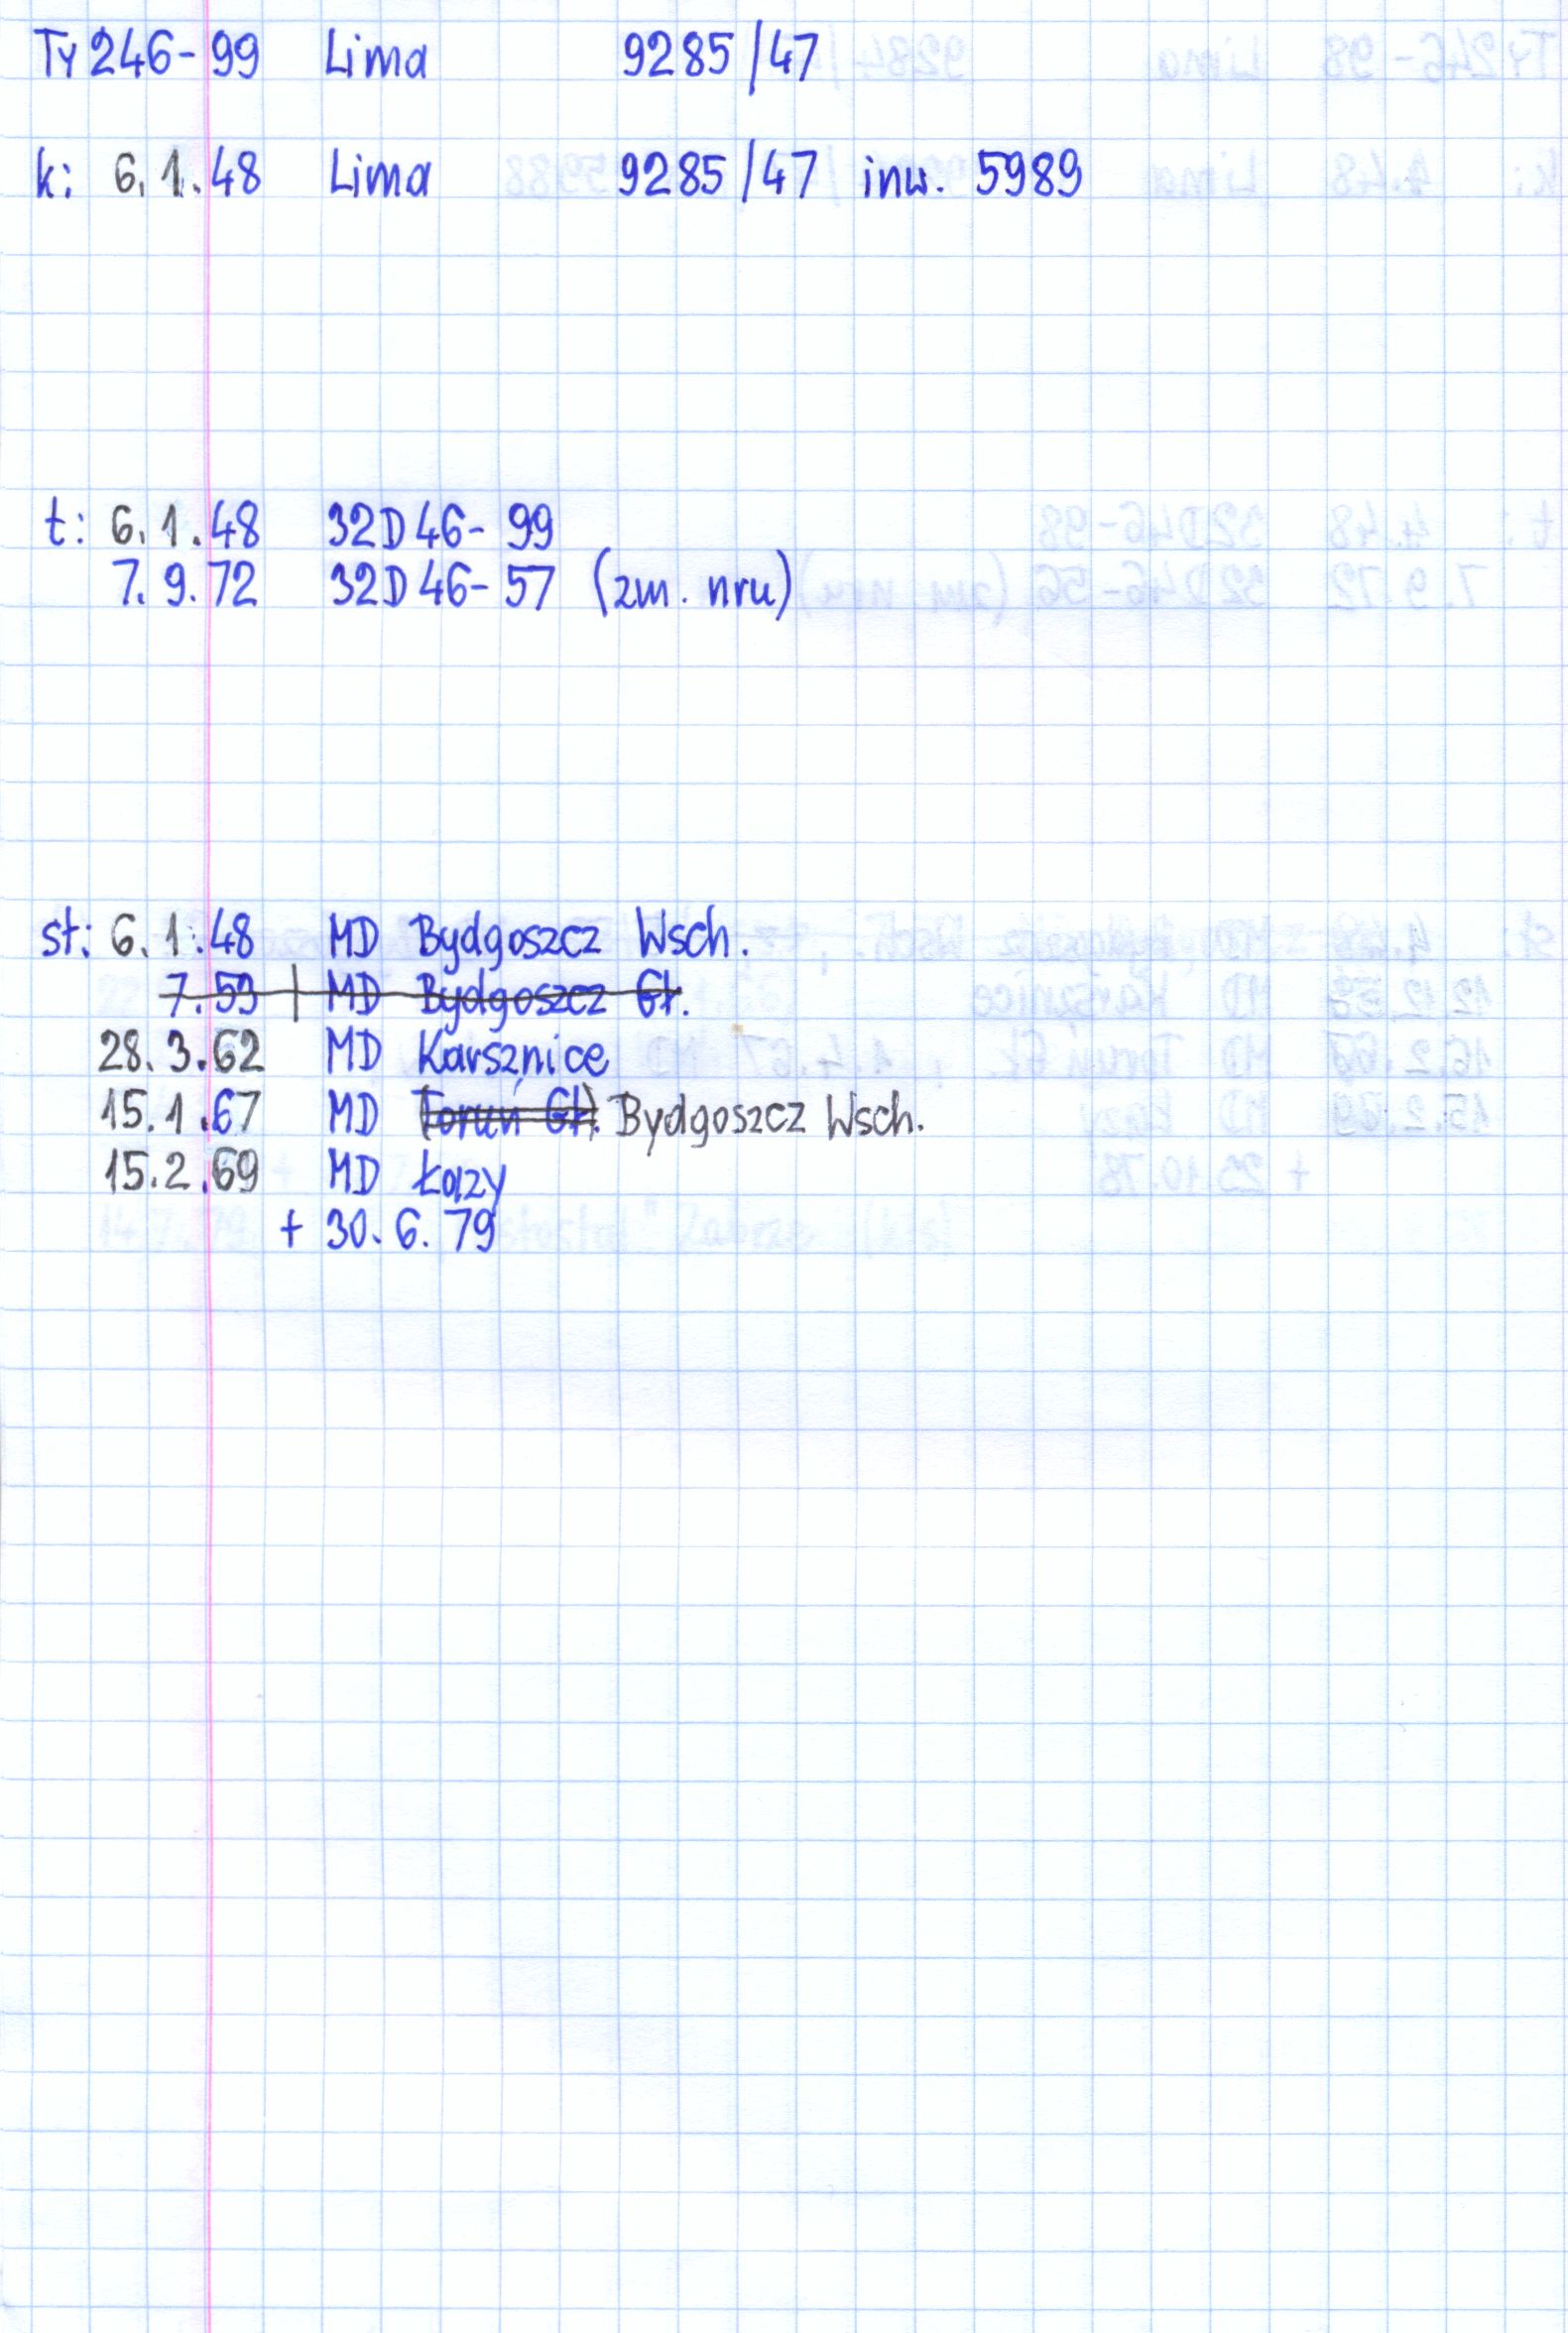 Ty 246-99 Lima 9285/47
k: 6.1.48 Lima 9285/47 inw. 5989
t: 6.1.48 32D46-99
7.9.72 32D46-57 (zm. nru)
st: 6.1.48 MD Bydgoszcz Wsch.
7.59 MD Bydgoszcz Gł.
28.3.62 MD Karsznice
15.1.67 MD Toruń Gł. Bydgoszcz Wsch.
15.2.69 MD Łazy
+ 30.6.79